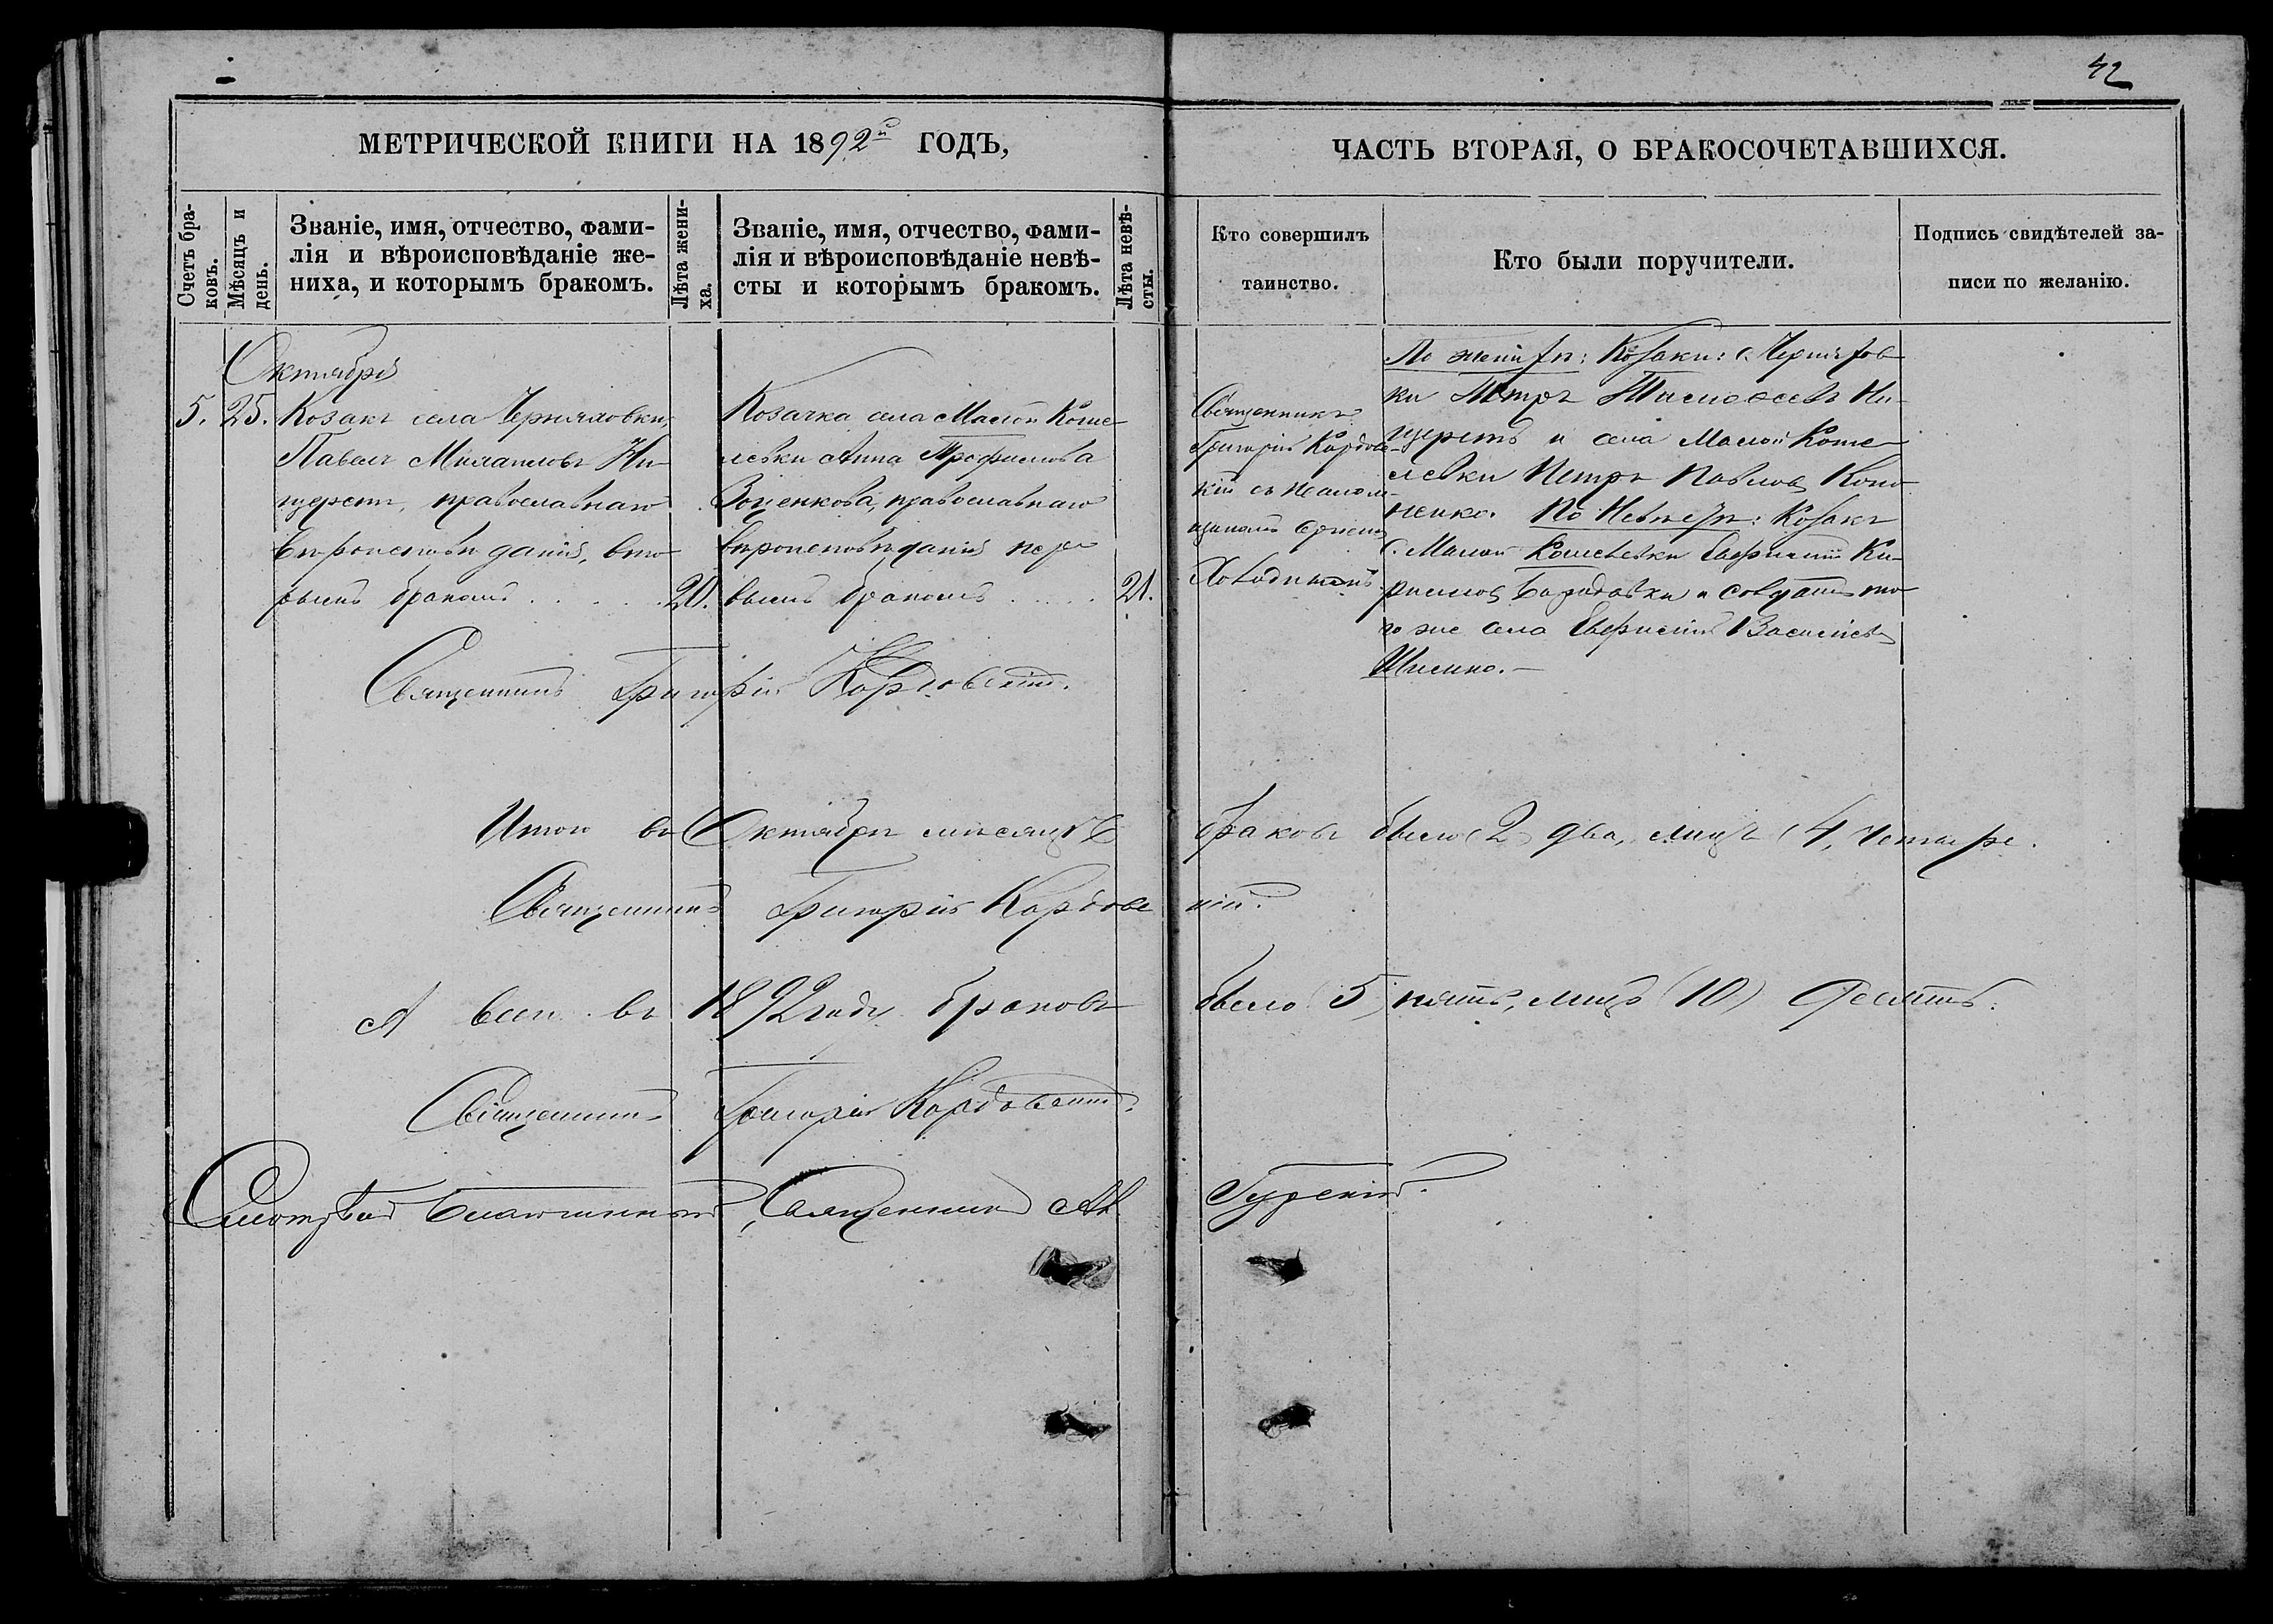 42
МЕТРИЧЕСКОЙ КНИГИ НА 1892й ГОДЪ,
ЧАСТЬ ВТОРАЯ, О БРАКОСОЧЕТАВШИХСЯ.
Счетъ бра-
ковъ.
Мѣсяцъ и
день.
Званіе, имя, отчество, фами-
лія и вѣроисповѣданіе же-
ниха, и которымъ бракомъ.
Лѣта жени-
ха.
Званіе, имя, отчество, фами-
лія и вѣроисповѣданіе невѣ-
сты и которымъ бракомъ.
Лѣта невѣ-
сты.
Кто совершилъ
таинство.
Кто были поручители.
Подпись свидѣтелей за-
писи по желанію.
Октября
5. 25. Козакъ села Черняховки,
Павелъ Михаиловъ Ни-
щеретъ, православнаго
вѣроисповѣданія, вто-
рымъ бракомъ . . . . . 20.
Козачка села Малой Коше-
левки Анна Трофимова
Зоценкова, православнаго
вѣроисповѣданія пер-
вымъ бракомъ . . . . 21.
Священникъ
Григорій Кордовс-
кій съ псалом-
щикомъ
По женихѣ: Козаки: с. Черняхов-
ки Петръ Ни-
щеретъ и села Малой Коше-
левки Петръ Павловъ Коно-
ненко. По Невѣстѣ: Козакъ
с. Малой Кошелевки Ки-
риловъ и солдатъ то-
го же села Васильевъ
Священникъ Григорій Кордовскій.
Итого въ Октябрѣ мѣсяцѣ браковъ было (2) два, лицъ (4) четыре.
Священникъ Григорій Кордовскій.
А всего въ 1892 году браковъ было (5) пять, лицъ (10) десять.
Священникъ Григорій Кордовскій.
Благочинный, Священникъ